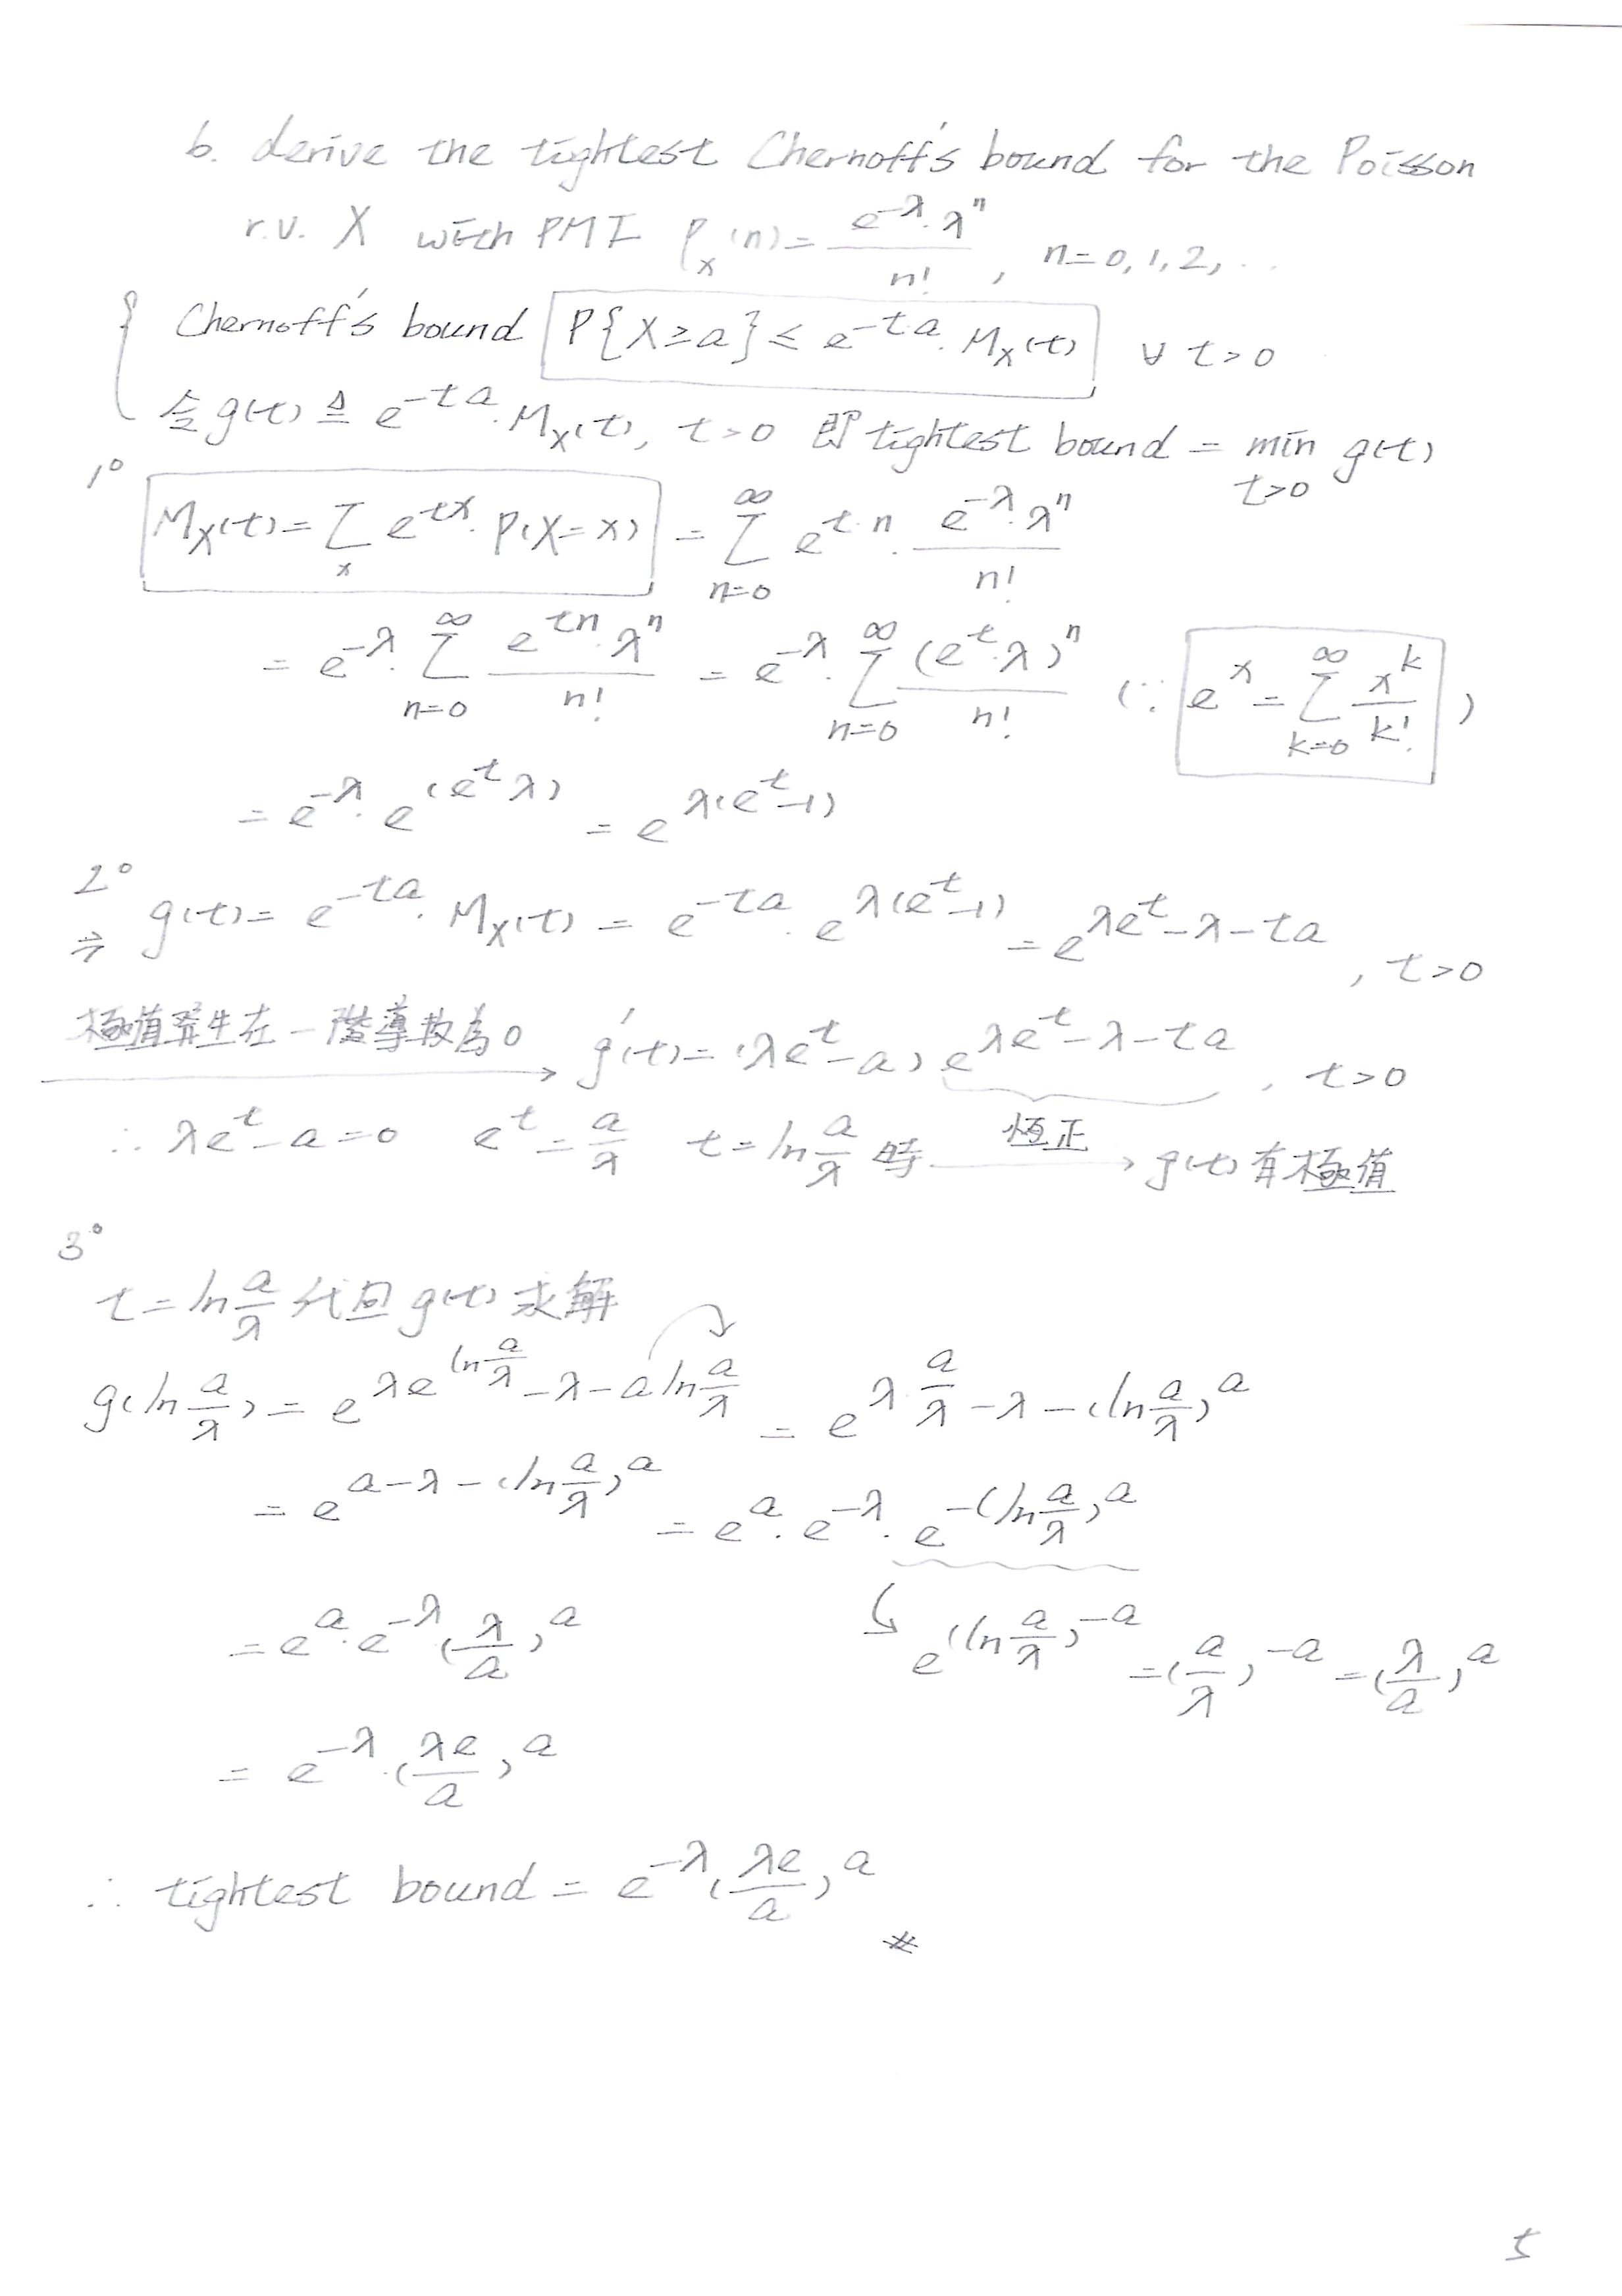 b. derive the tightest Chernoff's bound for the Poisson
r.v. X with PMF P_X(n) = e^{-λ}·λ^n / n! , n=0,1,2,...
Chernoff's bound P{X≥a} ≤ e^{-ta}·M_X(t) ∀ t>0
令 g(t) ≜ e^{-ta}·M_X(t), t>0 即 tightest bound = min_{t>0} g(t)
1° M_X(t) = Σ_x e^{tx}·P(X=x) = Σ_{n=0}^{∞} e^{t·n}·e^{-λ}·λ^n / n!
= e^{-λ}·Σ_{n=0}^{∞} e^{tn}·λ^n / n! = e^{-λ}·Σ_{n=0}^{∞} (e^t·λ)^n / n! (∵ e^x = Σ_{k=0}^{∞} x^k / k! )
= e^{-λ}·e^{(e^t λ)} = e^{λ(e^t-1)}
2°
⇒ g(t) = e^{-ta}·M_X(t) = e^{-ta}·e^{λ(e^t-1)} = e^{λe^t-λ-ta} , t>0
極值發生在一階導數為0 → g'(t) = (λe^t-a) e^{λe^t-λ-ta} , t>0
∴ λe^t-a=0 e^t = a/λ t = ln a/λ 時 恆正 → g(t) 有極值
3°
t = ln a/λ 代回 g(t) 求解
g(ln a/λ) = e^{λe^{ln a/λ}-λ-a ln a/λ} = e^{λ·a/λ-λ-(ln a/λ)^a}
= e^{a-λ-(ln a/λ)^a} = e^a·e^{-λ}·e^{-(ln a/λ)^a}
= e^a·e^{-λ}·(λ/a)^a ↳ e^{(ln a/λ)^{-a}} = (a/λ)^{-a} = (λ/a)^a
= e^{-λ}·(λe/a)^a
∴ tightest bound = e^{-λ}·(λe/a)^a #
5